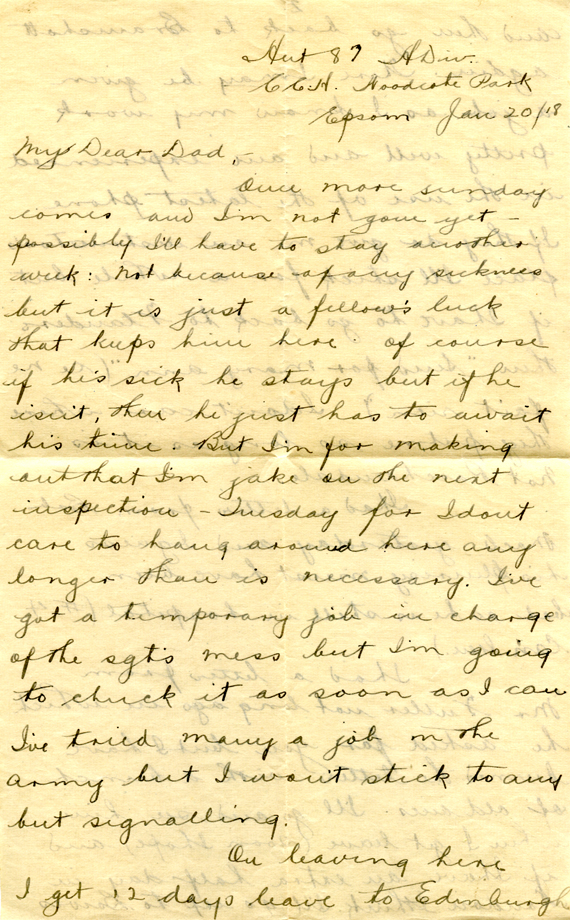 Hut 87 A Div.
C.C.H. Woodcote Park
Epsom Jan 20/18
My Dear Dad,-
Once more sunday
comes and I'm not gone yet -
possibly I'll have to stay another
week: Not because of any sickness
but it is just a fellow's luck
that keeps him here. Of course
if he's sick he stays but if he
isn't, then he just has to await
his time. But I'm for making
out that I'm jake on the next
inspection - Tuesday for I dont
care to hang around here any
longer than is necessary. I've
got a temporary job in charge
of the sgt's mess but I'm going
to chuck it as soon as I can
I've tried many a job in the
army but I won't stick to any
but signalling.
On leaving here
I get 12 days leave to Edinburgh